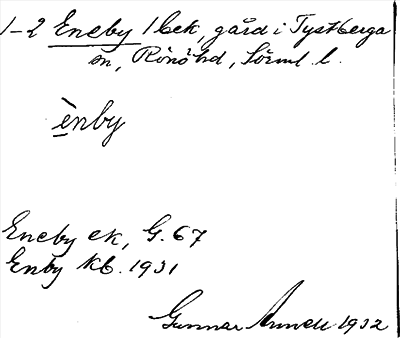 1-2 Eneby 1 bek, gård i Tystberga
sn, Rönö hd, Sörml. l.
ènby
Eneby ek, G. 67
Enby kb. 1931
Gunnar Annell 1932